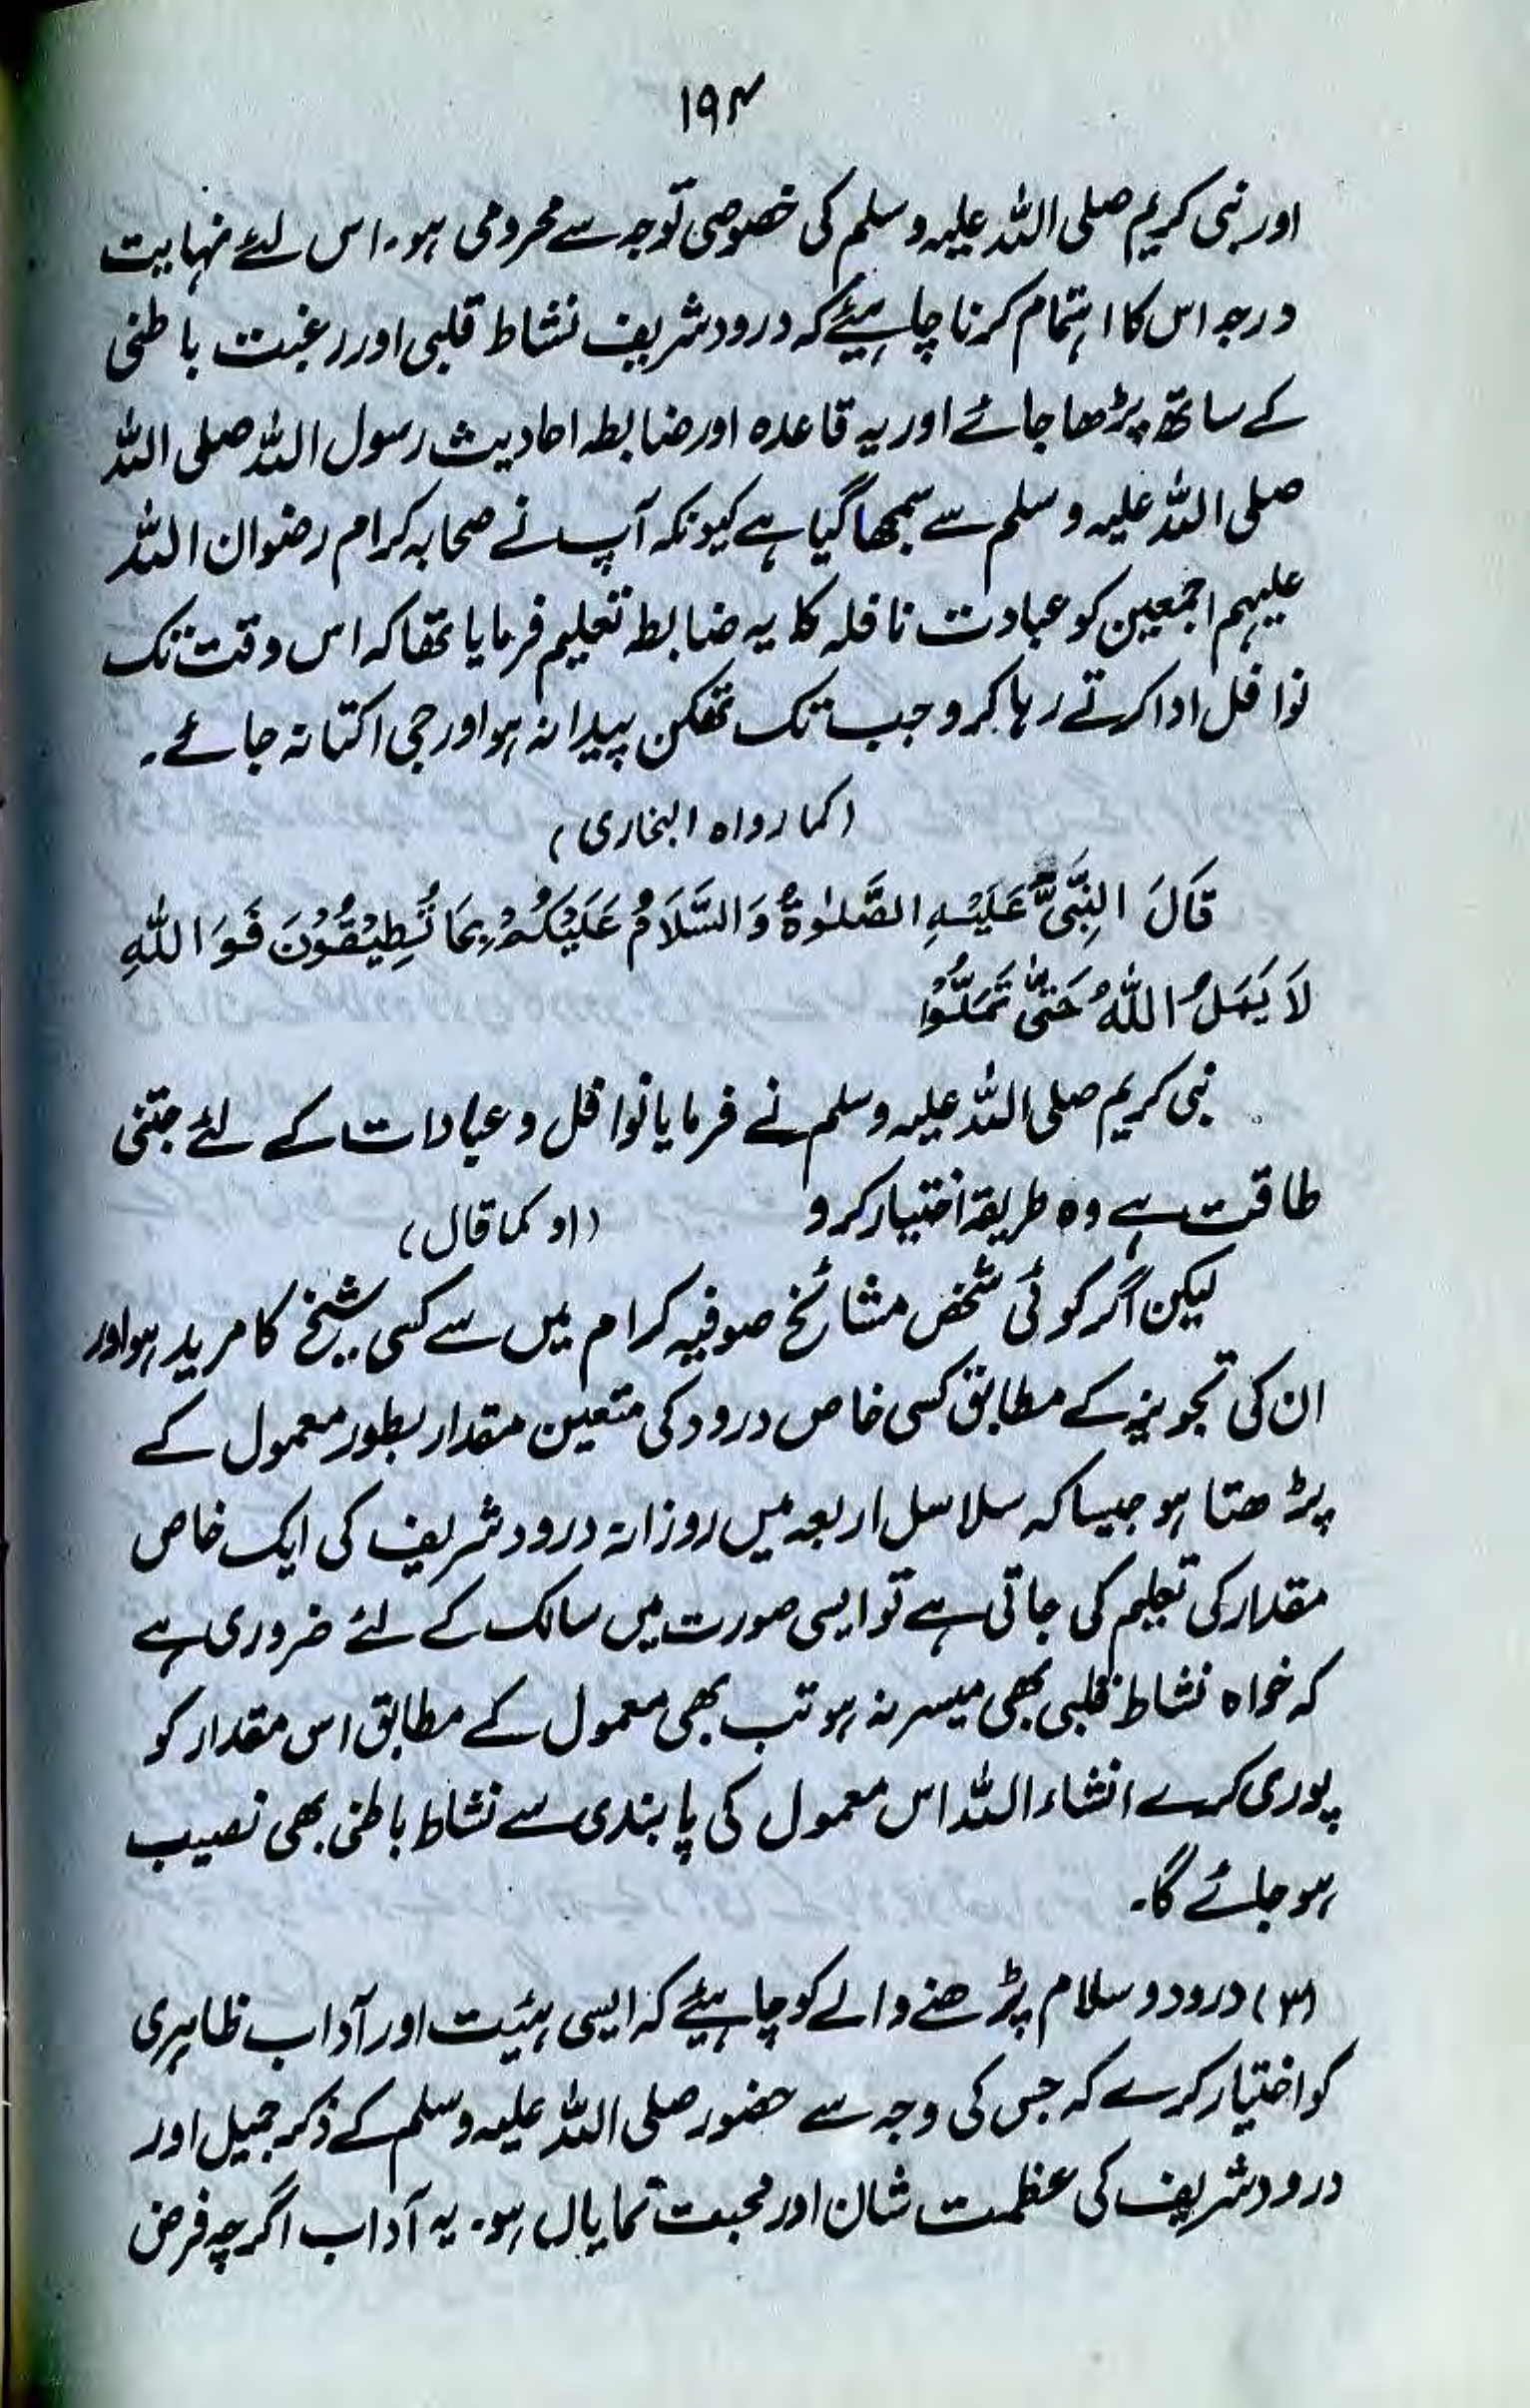 ۱۹۴
اور نبی کریم صلی اللہ علیہ وسلم کی خصوصی توجہ سے محرومی ہو۔ اس لئے نہایت
درجہ اس کا اہتمام کرنا چاہیئے کہ درود شریف نشاط قلبی اور رغبت باطنی
کے ساتھ پڑھا جائے اور یہ قاعدہ اور ضابطہ احادیث رسول اللہ صلی اللہ
صلی اللہ علیہ وسلم سے سمجھا گیا ہے کیونکہ آپ نے صحابہ کرام رضوان اللہ
علیہم اجمعین کو عبادت نافلہ کا یہ ضابطہ تعلیم فرمایا تھا کہ اس وقت تک
نوافل ادا کرتے رہا کرو جب تک تھکن پیدا نہ ہو اور جی اکتا نہ جائے۔
(کما رواہ البخاری)
قَالَ النَّبِیُّ عَلَیْہِ الصَّلٰوۃُ وَالسَّلَامُ عَلَیْکُمْ بِمَا تُطِیْقُوْنَ فَوَ اللّٰہِ
لَا یَمَلُّ اللّٰہُ حَتّٰی تَمَلُّوْا
نبی کریم صلی اللہ علیہ وسلم نے فرمایا نوافل و عبادات کے لئے جتنی
طاقت ہے وہ طریقہ اختیار کرو (او کما قال)
لیکن اگر کوئی شخص مشائخ صوفیہ کرام میں سے کسی شیخ کا مرید ہو اور
ان کی تجویز کے مطابق کسی خاص درود کی متعین مقدار بطور معمول کے
پڑھتا ہو جیسا کہ سلاسل اربعہ میں روزانہ درود شریف کی ایک خاص
مقدار کی تعلیم کی جاتی ہے تو ایسی صورت میں سالک کے لئے ضروری ہے
کہ خواہ نشاط قلبی بھی میسر نہ ہو تب بھی معمول کے مطابق اس مقدار کو
پوری کرے انشاء اللہ اس معمول کی پابندی سے نشاط باطنی بھی نصیب
ہو جائے گا۔
(۳) درود و سلام پڑھنے والے کو چاہیئے کہ ایسی ہیئت اور آداب ظاہری
کو اختیار کرے کہ جس کی وجہ سے حضور صلی اللہ علیہ وسلم کے ذکر جمیل اور
درود شریف کی عظمت شان اور محبت نمایاں ہو۔ یہ آداب اگرچہ فرض